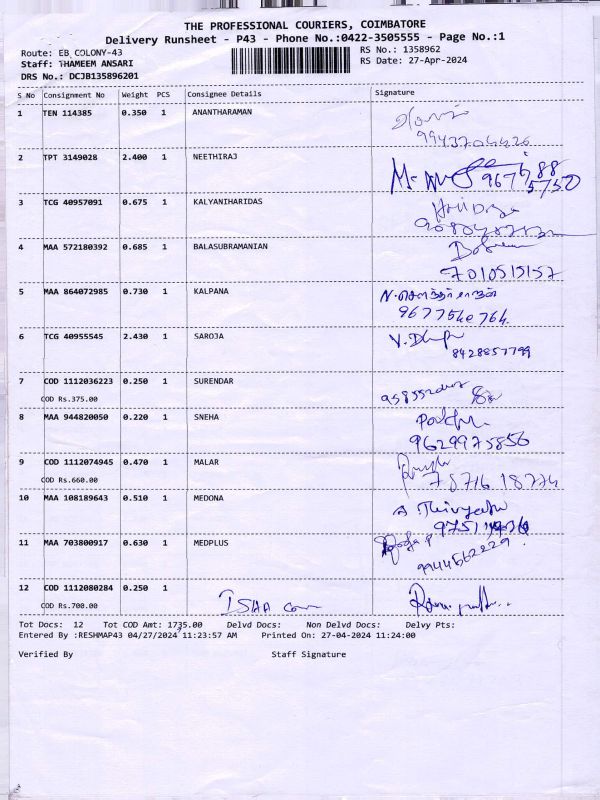 THE PROFESSIONAL COURIERS, COIMBATORE
Delivery Runsheet - P43 - Phone No.:0422-3505555 - Page No.:1
Route: EB_COLONY-43 RS No.: 1358962
Staff: THAMEEM ANSARI RS Date: 27-Apr-2024
DRS No.: DCJB135896201
S No Consignment No Weight PCS Consignee Details Signature
1 TEN 114385 0.350 1 ANANTHARAMAN
9943704426
2 TPT 3149028 2.400 1 NEETHIRAJ
3 TCG 40957091 0.675 1 KALYANIHARIDAS
4 MAA 572180392 0.685 1 BALASUBRAMANIAN
7010515157
5 MAA 864072985 0.730 1 KALPANA
9677540764.
6 TCG 40955545 2.430 1 SAROJA
8428857799
7 COD 1112036223 0.250 1 SURENDAR
COD Rs.375.00
8 MAA 944820050 0.220 1 SNEHA
9629975856
9 COD 1112074945 0.470 1 MALAR
COD Rs.660.00
10 MAA 108189643 0.510 1 MEDONA
11 MAA 703800917 0.630 1 MEDPLUS
9944562229.
12 COD 1112080284 0.250 1
COD Rs.700.00 ISHA
Tot Docs: 12 Tot COD Amt: 1735.00 Delvd Docs: Non Delvd Docs: Delvy Pts:
Entered By :RESHMAP43 04/27/2024 11:23:57 AM Printed On: 27-04-2024 11:24:00
Verified By Staff Signature